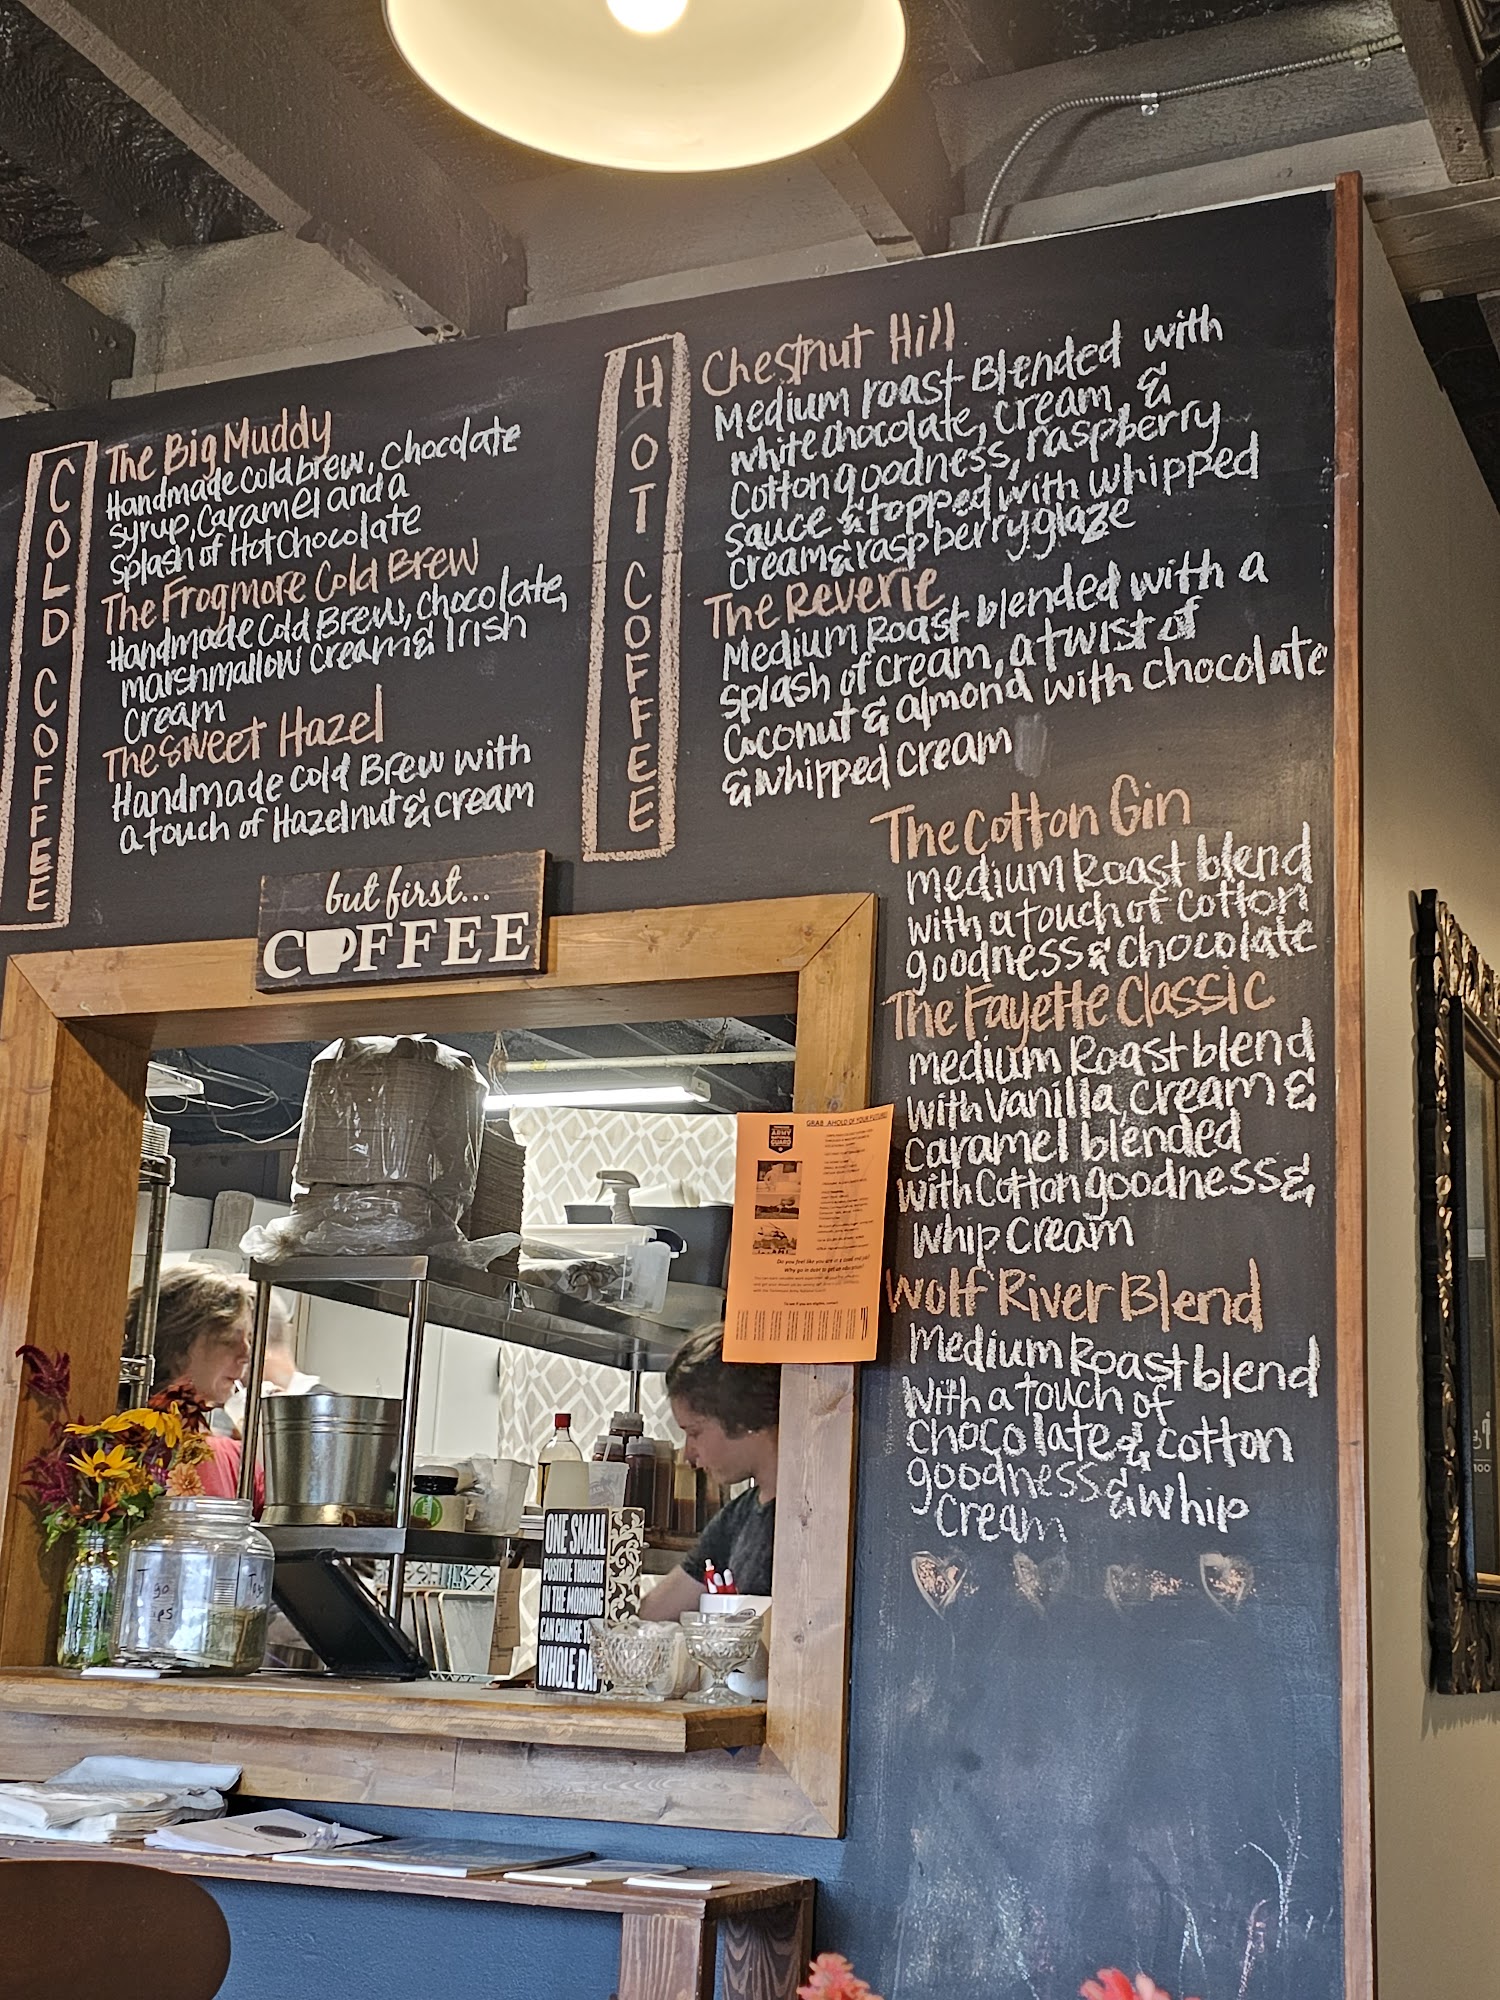 COLD COFFEE
The Big Muddy
Handmade cold brew, Chocolate
syrup, Caramel and a
splash of Hot Chocolate
The Frogmore Cold Brew
Handmade Cold Brew, chocolate,
marshmallow cream & Irish
Cream
The Sweet Hazel
Handmade Cold Brew with
a touch of Hazelnut & cream
HOT COFFEE
Chestnut Hill
Medium roast Blended with
white chocolate, cream, &
Cotton goodness, raspberry
sauce & topped with whipped
cream & raspberry glaze
The Reverie
Medium Roast blended with a
splash of cream, a twist of
Coconut & almond with chocolate
& whipped cream
The Cotton Gin
medium Roast blend
with a touch of Cotton
goodness & chocolate
The Fayette Classic
medium Roast blend
with Vanilla, cream &
Caramel blended
with Cotton goodness &
whip cream
Wolf River Blend
Medium Roast blend
with a touch of
chocolate & cotton
goodness & whip
cream
but first...
COFFEE
GRAB AHOLD OF YOUR FUTURE!
ARMY
NATIONAL
GUARD
Do you feel like you are in a dead end job?
Why go in debt to get an education?
ONE SMALL
POSITIVE THOUGHT
IN THE MORNING
CAN CHANGE
WHOLE DAY